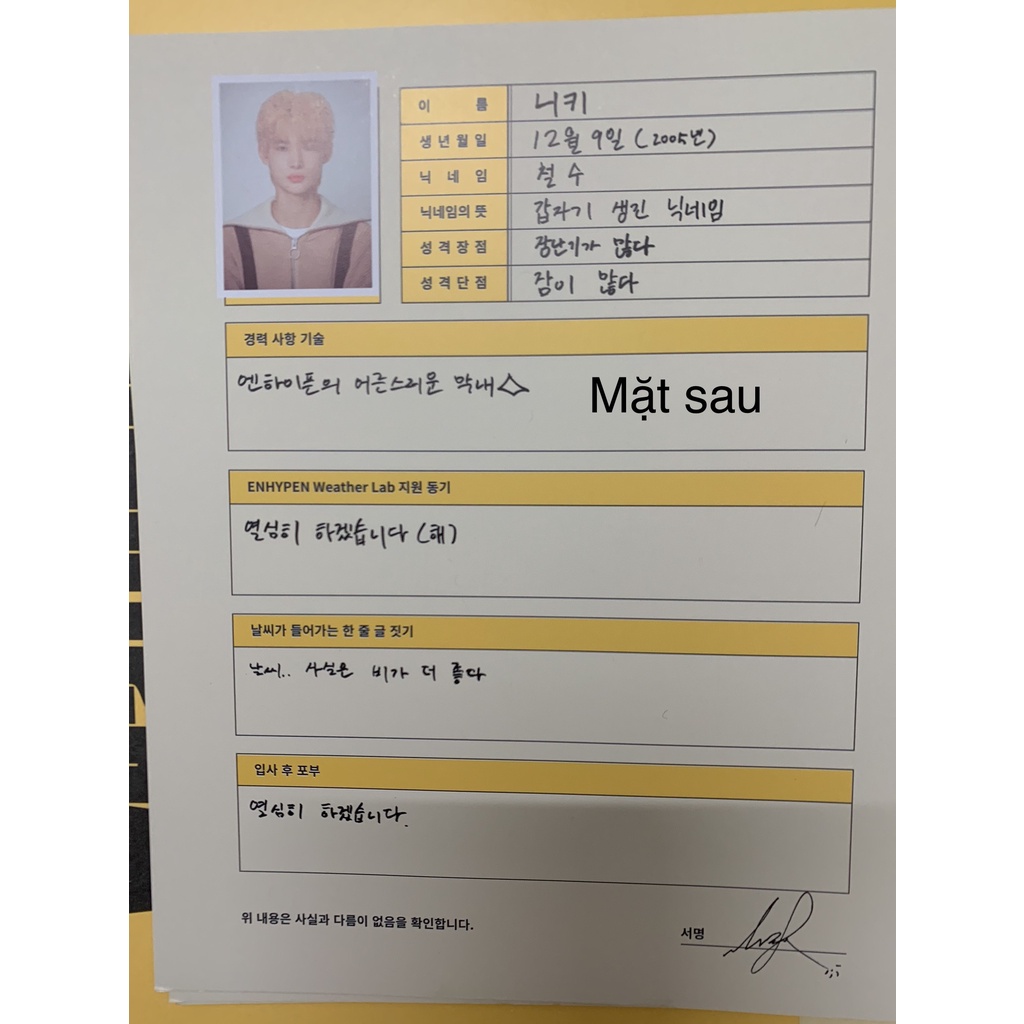 이 름 니키
생년월일 12월 9일 (2005년)
닉 네 임 철수
닉네임의 뜻 갑자기 생긴 닉네임
성격장점 장난기가 많다
성격단점 잠이 많다
경력 사항 기술
엔하이픈의 어른스러운 막내
Mặt sau
ENHYPEN Weather Lab 지원 동기
열심히 하겠습니다 (해)
날씨가 들어가는 한 줄 글 짓기
날씨.. 사실은 비가 더 좋다
입사 후 포부
열심히 하겠습니다.
위 내용은 사실과 다름이 없음을 확인합니다.
서명